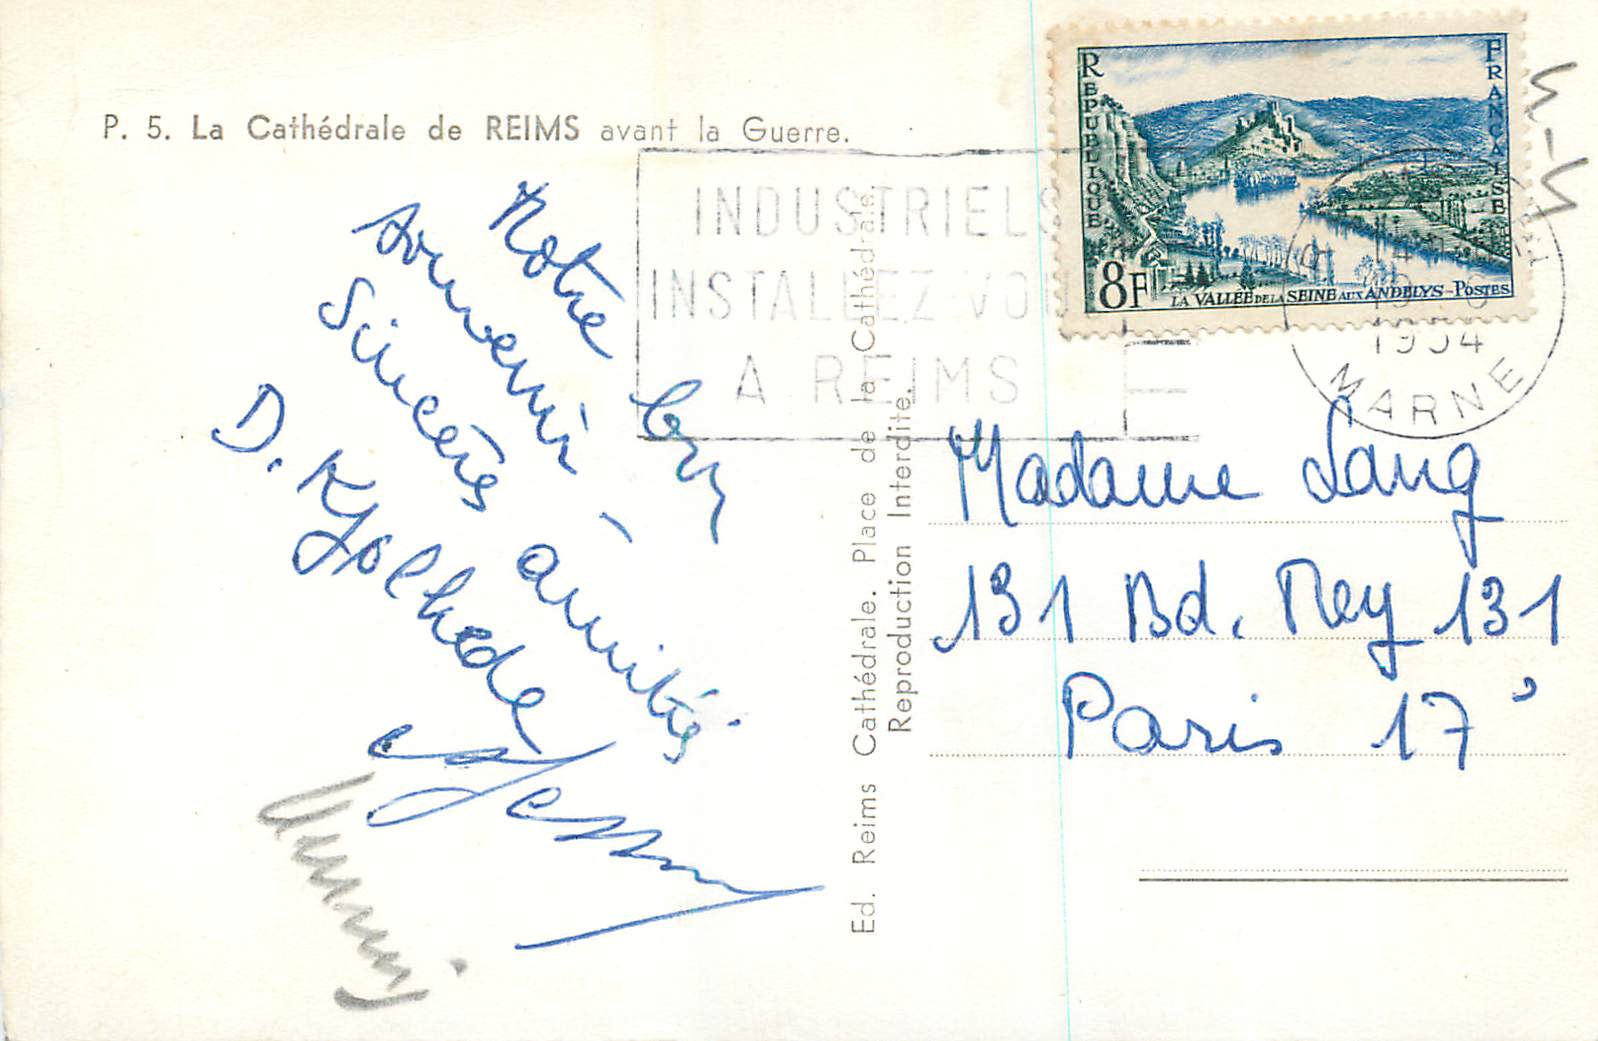 P. 5. La Cathédrale de REIMS avant la Guerre.
Notre bon
souvenir
Sincères amitiés
D.
RÉPUBLIQUE FRANÇAISE
8F
LA VALLÉE DE LA SEINE AUX ANDELYS - POSTES
INDUSTRIELS
INSTALLEZ-VOU
A REIMS
1954
MARNE
Ed. Reims Cathédrale. Place de la Cathédrale.
Reproduction Interdite.
Madame Lang
131 Bd. Ney 131
Paris 17